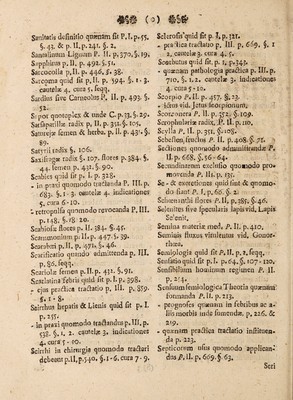 (o)
Sanitatis definitio quænam sit P. I. p. 55.
§. 43. & p. II. p. 241. §. 2.
Santalinum Lignum P. II. p. 370. §. 19.
Sapphirus p. II. p. 492. §. 51.
Sarcocolla p. II. p. 446. §. 38.
Sarcoma quid sit p. II. p. 594. §. 1-3.
cautelæ 4. cura 5. seqq.
Sardius sive Carneolus P. II. p. 493. §.
52.
Sapor quotuplex & unde C. p. 13. §. 29.
Sarsaparillæ radix p. II. p. 312. §. 105.
Saturejæ semen & herba. p. II. p. 431. §.
89.
Satyrii radix §. 106.
Saxifragæ radix §. 107. flores p. 384. §.
44. semen p. 431. §. 90.
Scabies quid sit p. I. p. 328.
- in praxi quomodo tractanda P. III. p.
683. §. 1-3. cautelæ 4. indicationes
5. cura 6-10.
- retropulsa quomodo revocanda P. III.
p. 148. §. 19. 20.
Scabiosæ flores p. II. 384. §. 45.
Scammonium p. II. p. 447. §. 39.
Scarabei p. II. p. 471. §. 46.
Scarificatio quando admittenda p. III.
p. 86. seqq.
Scariolæ semen p. II. p. 431. §. 91.
Scarlatina febris quid sit p. I. p. 398.
- ejus practica tractatio p. III. p. 859.
§. 1-8.
Scirrhus hepatis & Lienis quid sit p. I.
p. 255.
- in praxi quomodo tractandus p. III. p.
538. §. 1. 2. cautelæ 3. indicationes
4. cura 5-10.
Scirrhi in chirurgia quomodo tractari
debeant p. II. p. 540. §. 1-6. cura 7-9.
Sclerosis quid sit p. I. p. 121.
- practica tractatio p. III. p. 669. §. 1
2. cautelæ 3. cura 4. 5.
Scorbutus quid sit p. I. p. 341.
- quænam pathologia practica p. III. p.
710. §. 1. 2. cautelæ 3. indicationes
4. cura 5-10.
Scorpio P. II. p. 457. §. 23.
- ictus vid. Ictus scorpionum.
Scorzonera P. II. p. 312. §. 109.
Scrophulariæ radix, P. II. p. 110.
Scylla P. II. p. 311. §. 108.
Sebesten, fructus P. II. p. 408. §. 75.
Sectiones quomodo administrandæ P.
II. p. 668. §. 56-64.
Secundinarum exclusio quomodo pro-
movenda P. III. p. 131.
Se- & excretiones quid sint & quomo-
do fiant P. I. p. 68. §. 2.
Schœnanthi flores P. II. p. 385. §. 46.
Selenites sive specularis lapis vid. Lapis
Selenit.
Semina materiæ med. P. II. p. 410.
Seminis fluxus virilentus vid. Gonor-
rhœa.
Semiologia quid sit P. II. p. 1. seqq.
Sensatio quid sit p. I. p. 64. §. 107-110.
Sensibilium hominum regimen P. II.
p. 214.
Sensuum semiologica Theoria quænam
formanda P. II. p. 213.
- prognosis quænam in febribus ac a-
liis morbis inde sumenda. p. 216. &
219.
- quænam practica tractatio instituen-
da p. 223.
Septicorum usus quomodo applican-
dus P. II. p. 609. §. 63.
Seri